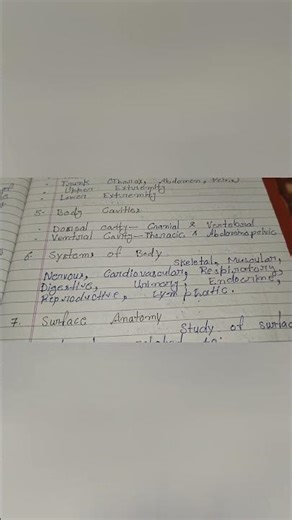 • Trunk (Thorax, Abdomen, Pelvis)
• Upper Extremity
• Lower Extremity
5. Body Cavities
• Dorsal cavity - Cranial & Vertebral
• Ventral Cavity - Thoracic & Abdominopelvic
6. Systems of Body
Skeletal, Muscular,
Nervous, Cardiovascular, Respiratory,
Digestive, Urinary, Endocrine,
Reproductive, Lymphatic.
7. Surface Anatomy
Study of surface